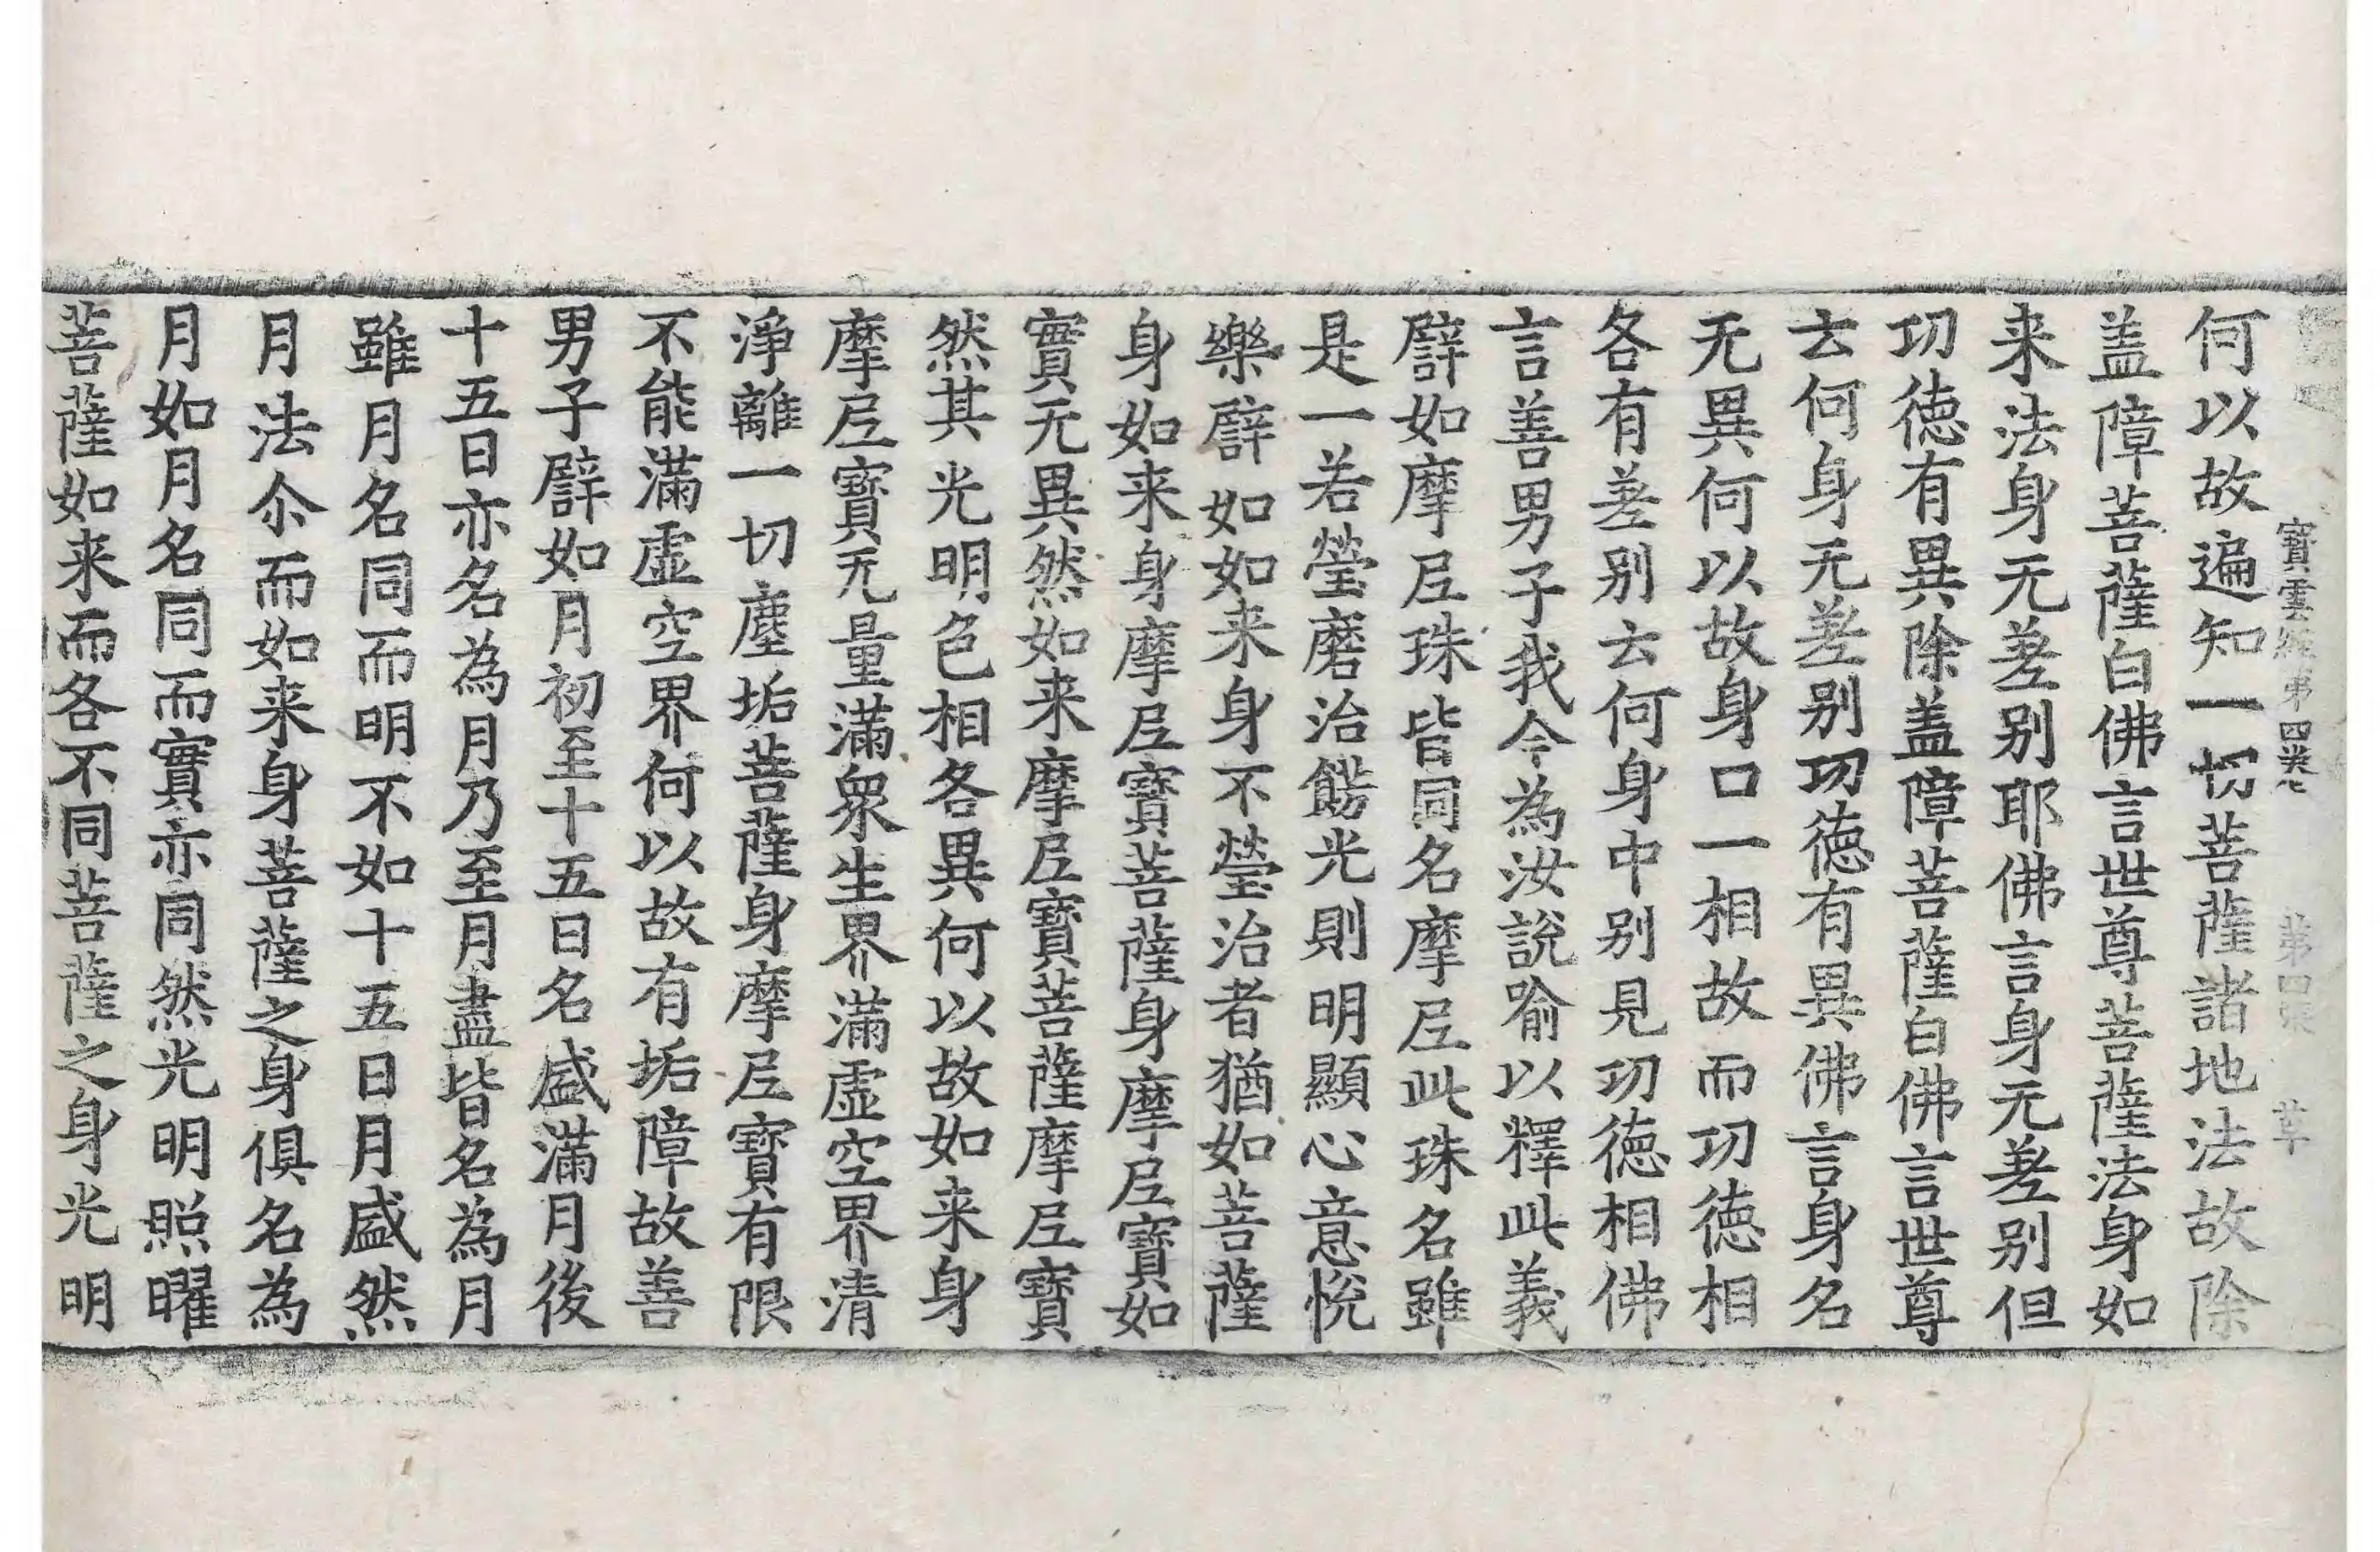 寶雲經第四卷 第四張 草
何以故遍知一切菩薩諸地法故除
盖障菩薩白佛言世尊菩薩法身如
来法身无差别耶佛言身无差别但
功德有異除盖障菩薩白佛言世尊
云何身无差别功德有異佛言身名
无異何以故身口一相故而功德相
各有差别云何身中别見功德相佛
言善男子我今為汝說喻以釋此義
譬如摩尼珠皆同名摩尼此珠名雖
是一若瑩磨治餝光則明顯心意悅
樂譬如如来身不瑩治者猶如菩薩
身如来身摩尼寶菩薩身摩尼寶如
實无異然如来摩尼寶菩薩摩尼寶
然其光明色相各異何以故如来身
摩尼寶无量滿衆生界滿虛空界清
淨離一切塵垢菩薩身摩尼寶有限
不能滿虛空界何以故有垢障故善
男子譬如月初至十五日名盛滿月後
十五日亦名為月乃至月盡皆名為月
雖月名同而明不如十五日月盛然
月法尒而如来身菩薩之身俱名為
月如月名同而實亦同然光明照曜
菩薩如来而各不同菩薩之身光明